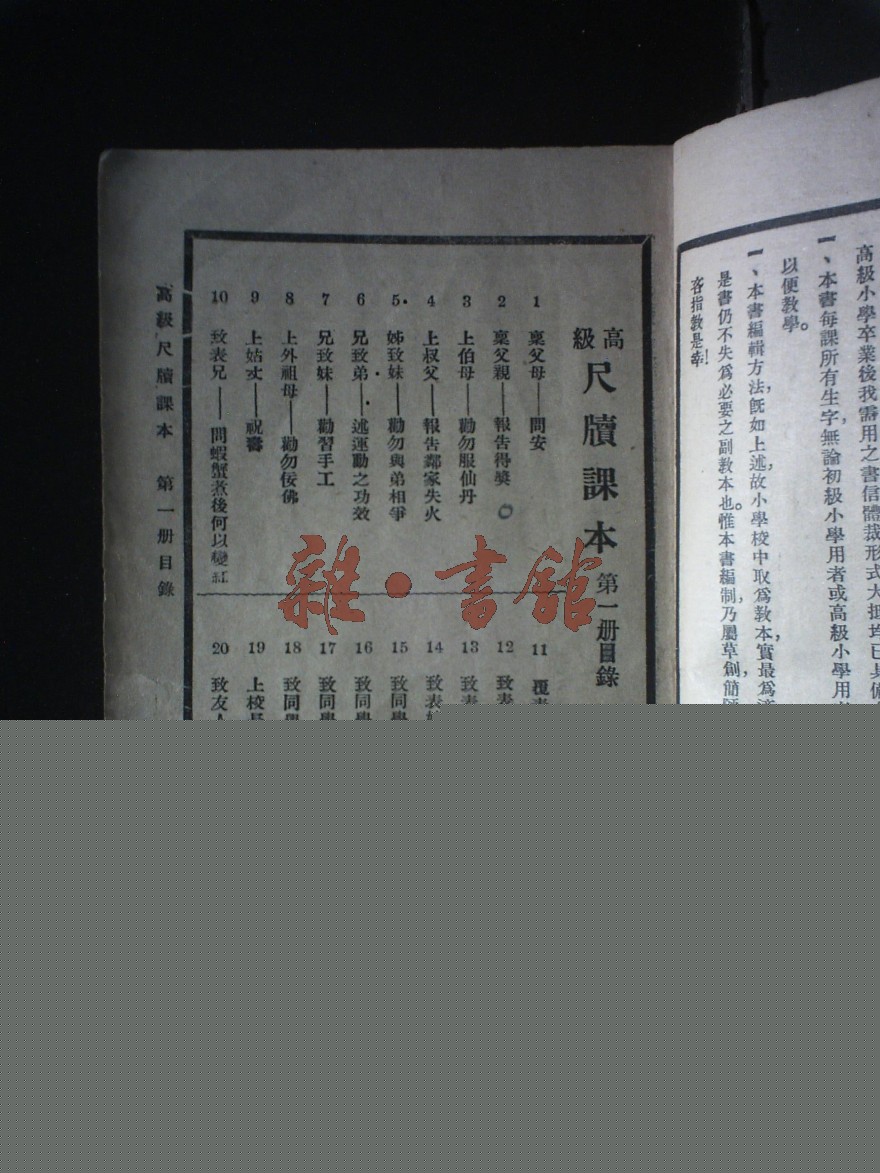 高級小學卒業後我需用之書信體裁形式大抵均已具
一、本書每課所有生字，無論初級小學用者或高級小學用
以便教學。
一、本書編輯方法，既如上述，故小學校中取爲教本，實最爲
是書仍不失爲必要之副教本也。惟本書編制，乃屬草創，簡
吝指教是幸！
高級尺牘課本 第一册目錄
1 稟父母——問安
2 稟父親——報告得獎
3 上伯母——勸勿服仙丹
4 上叔父——報告鄰家失火
5 姊致妹——勸勿與弟相爭
6 兄致弟——述運動之功效
7 兄致妹——勸習手工
8 上外祖母——勸勿佞佛
9 上姑丈——祝壽
10 致表兄——問蝦蟹煮後何以變紅
11 覆表
12 致表
13 致表
14 致表
15 致同學
16 致同學
17 致同學
18 致同學
19 上校長
20 致友人
高級尺牘課本 第一册目錄
雜·書館